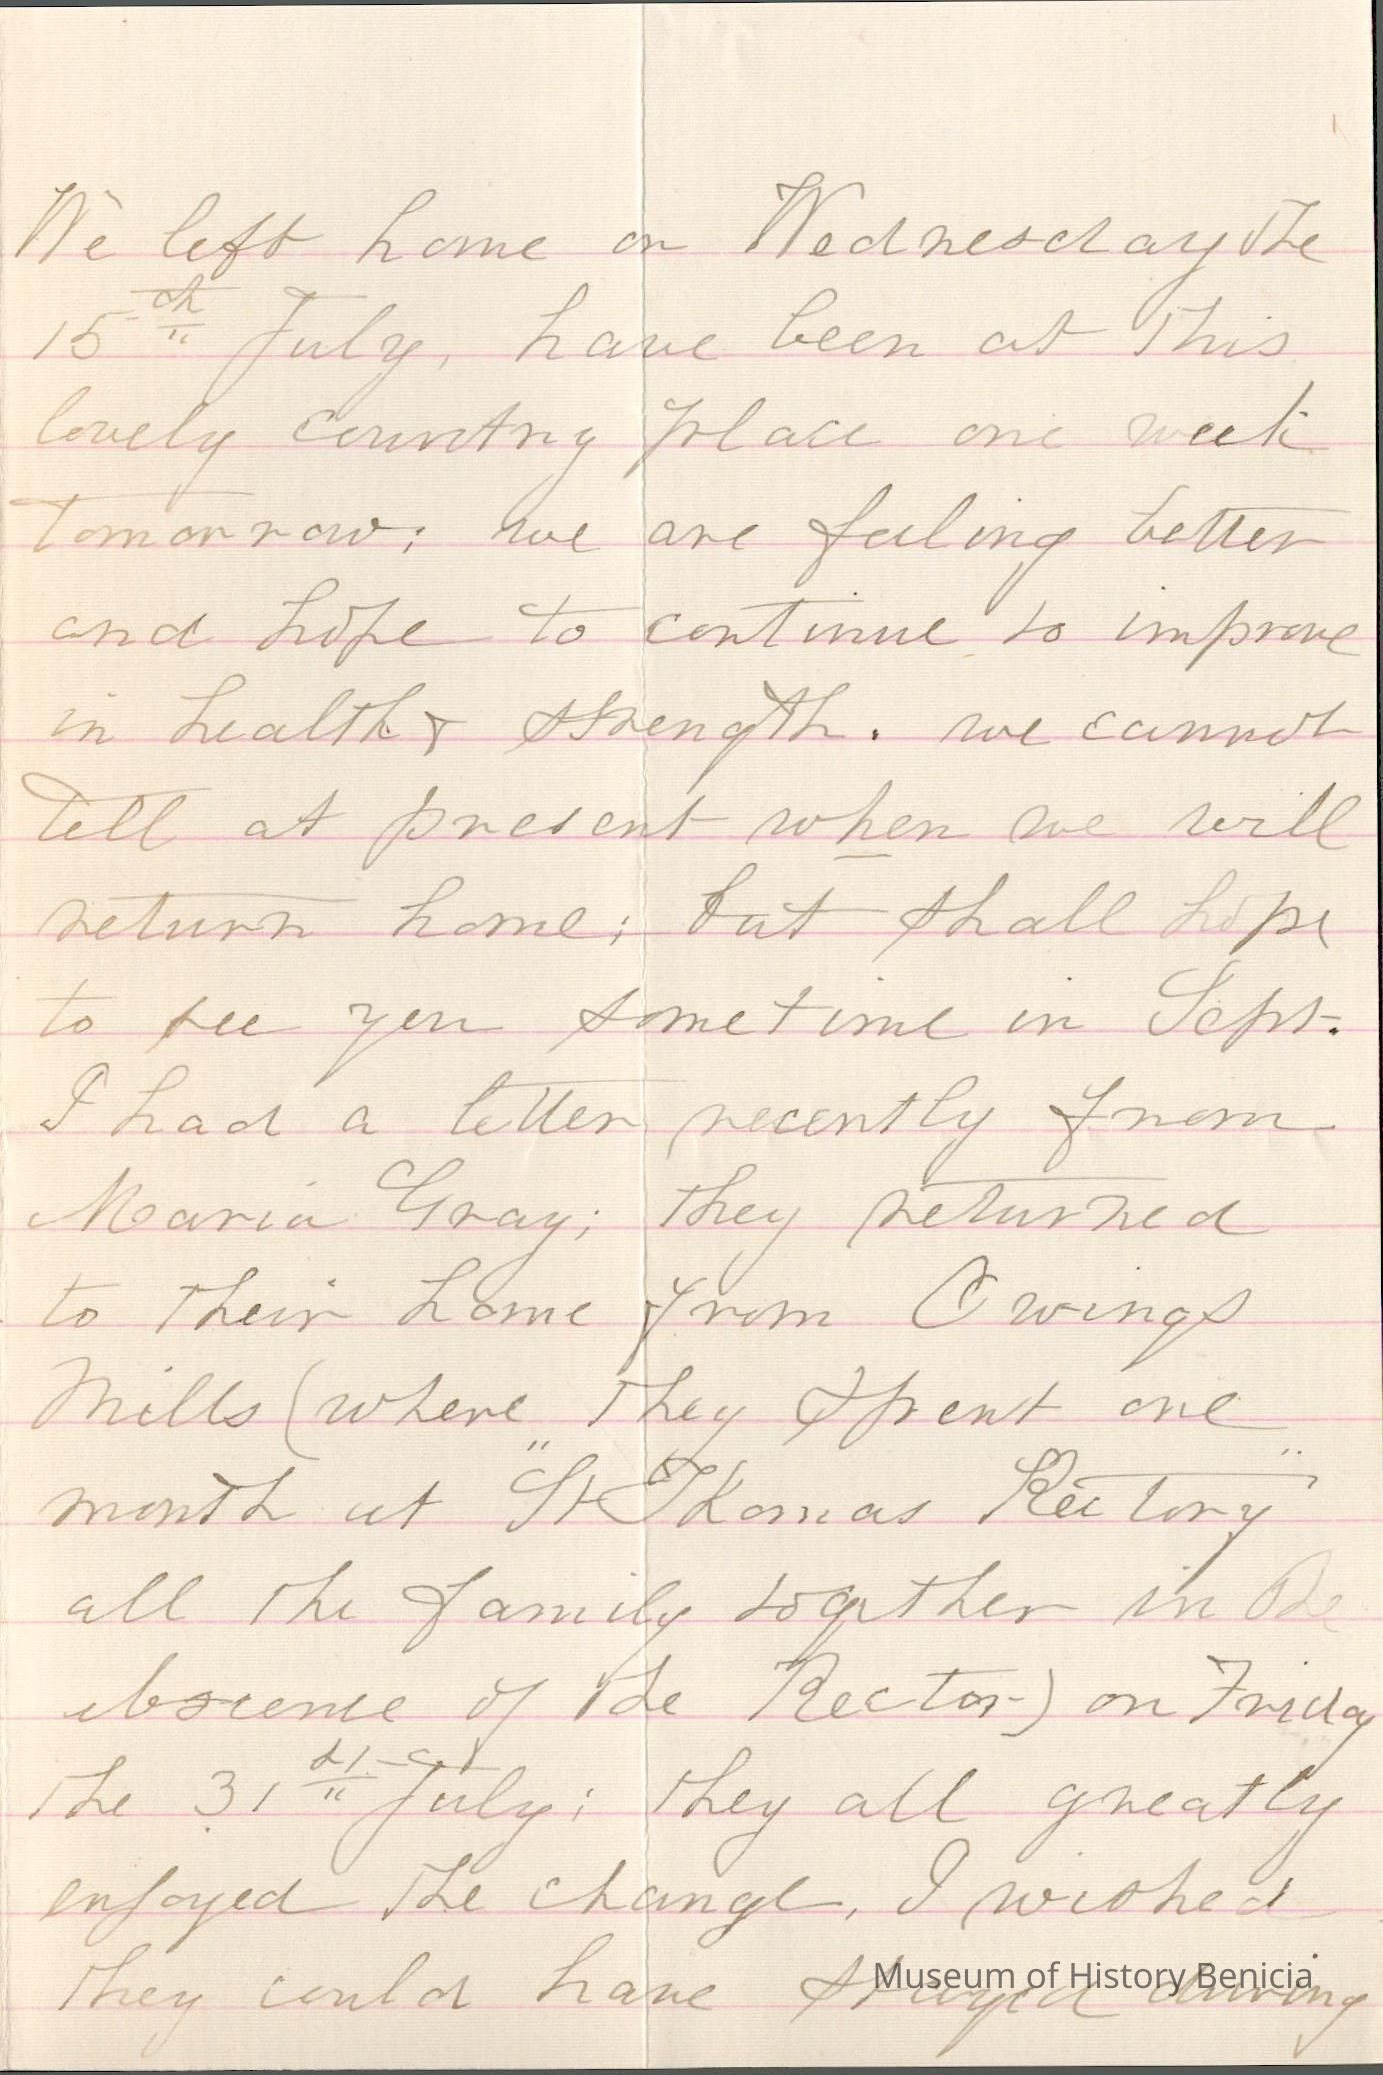 We left home on Wednesday the
15th July, have been at this
lovely country place one week
tomorrow; we are feeling better
and hope to continue to improve
in health & strength. we cannot
tell at present when we will
return home; but shall hope
to see you sometime in Sept.
I had a letter recently from
Maria Gray; they returned
to their home from Owings
Mills (where they spent one
month at "St Thomas Rectory"
all the family together in the
absence of the Rector) on Friday
the 31st July; they all greatly
enjoyed the change, I wished
they could have stayed during
Museum of History Benicia